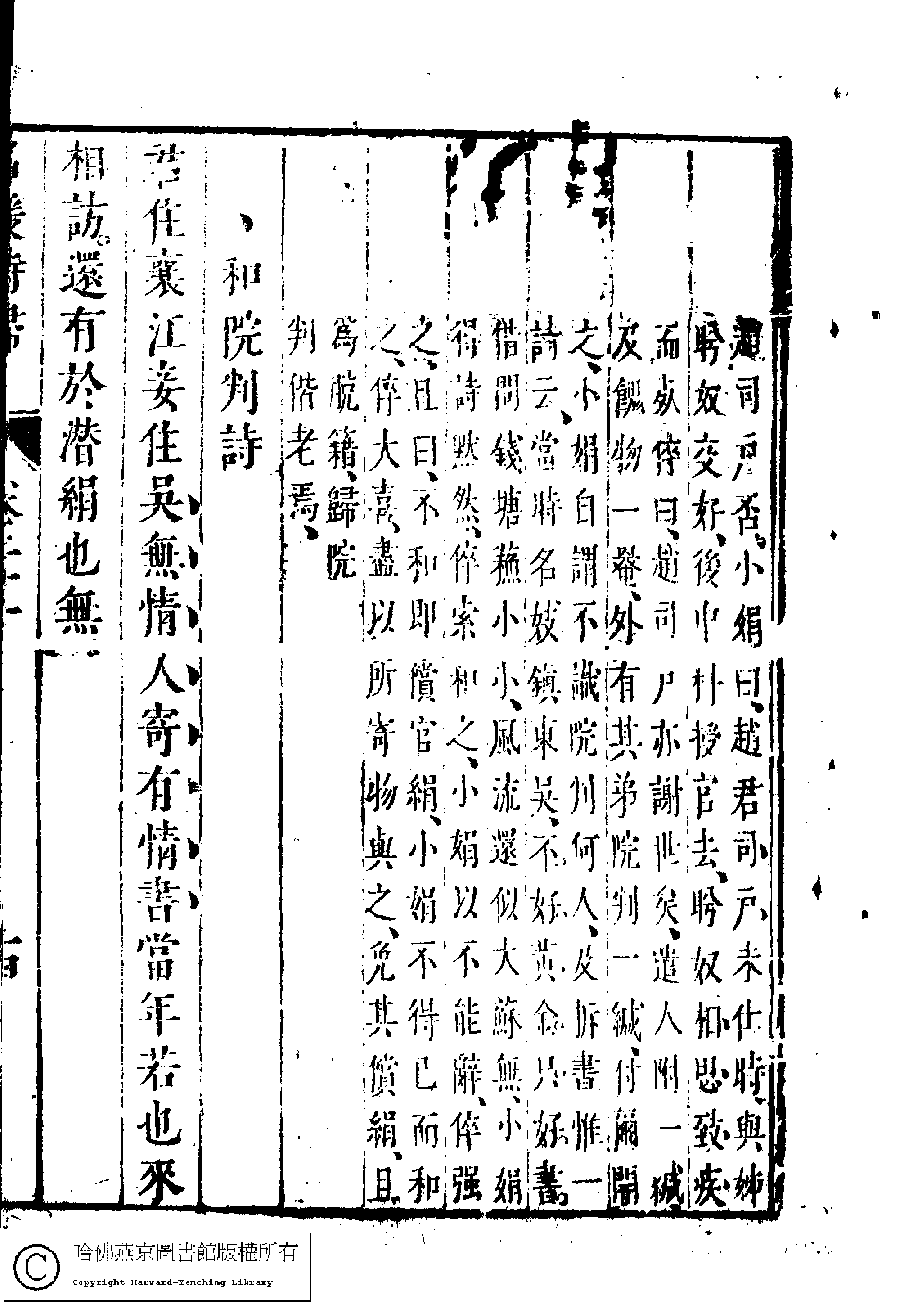 趙司戶否小娟曰趙君司戶未仕時與姊
盼奴交好後中科授官去盼奴相思致疾
而歿倅曰趙司戶亦謝世矣遣人附一緘
及餽物一罨外有其弟院判一緘付爾開
之小娟自謂不識院判何人及拆書惟一
詩云當時名妓鎮東吳不好黃金只好書
借問錢塘蘇小小風流還似大蘇無小娟
得詩默然倅索和之小娟以不能辭倅強
之且曰不和即償官絹小娟不得已而和
之倅大喜盡以所寄物與之免其償絹且
為脫籍歸院
判偕老焉
和院判詩
君住襄江妾住吳無情人寄有情書當年若也來
相訪還有於潛絹也無
哈佛燕京圖書館版權所有
Copyright Harvard-Yenching Library